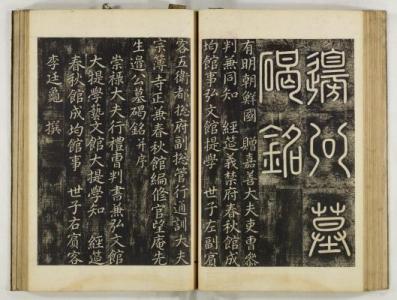 邊公墓
碣銘
有明朝鮮國 贈嘉善大夫吏曹參
判兼同知 經筵義禁府春秋館成
均館事弘文館提學 世子左副賓
客五衛都摠府副摠管行通訓大夫
宗簿寺正兼春秋館編修官望庵先
生邊公墓碣銘 并序
崇祿大夫行禮曹判書兼弘文館
大提學藝文館大提學知 經筵
春秋館成均館事 世子右賓客
李廷龜 撰